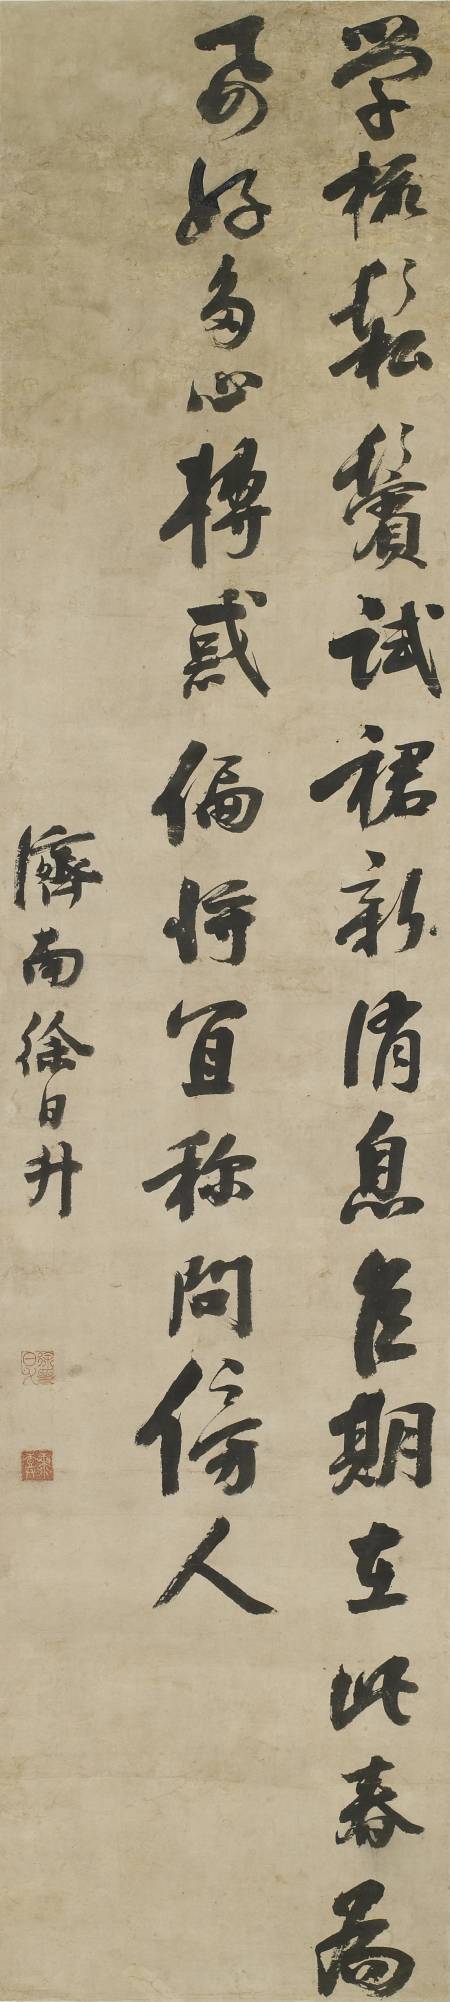 学梳鬆鬢試裙新消息佳期在此春為
要好多心轉惑偏將宜称問傍人
濟南徐日升